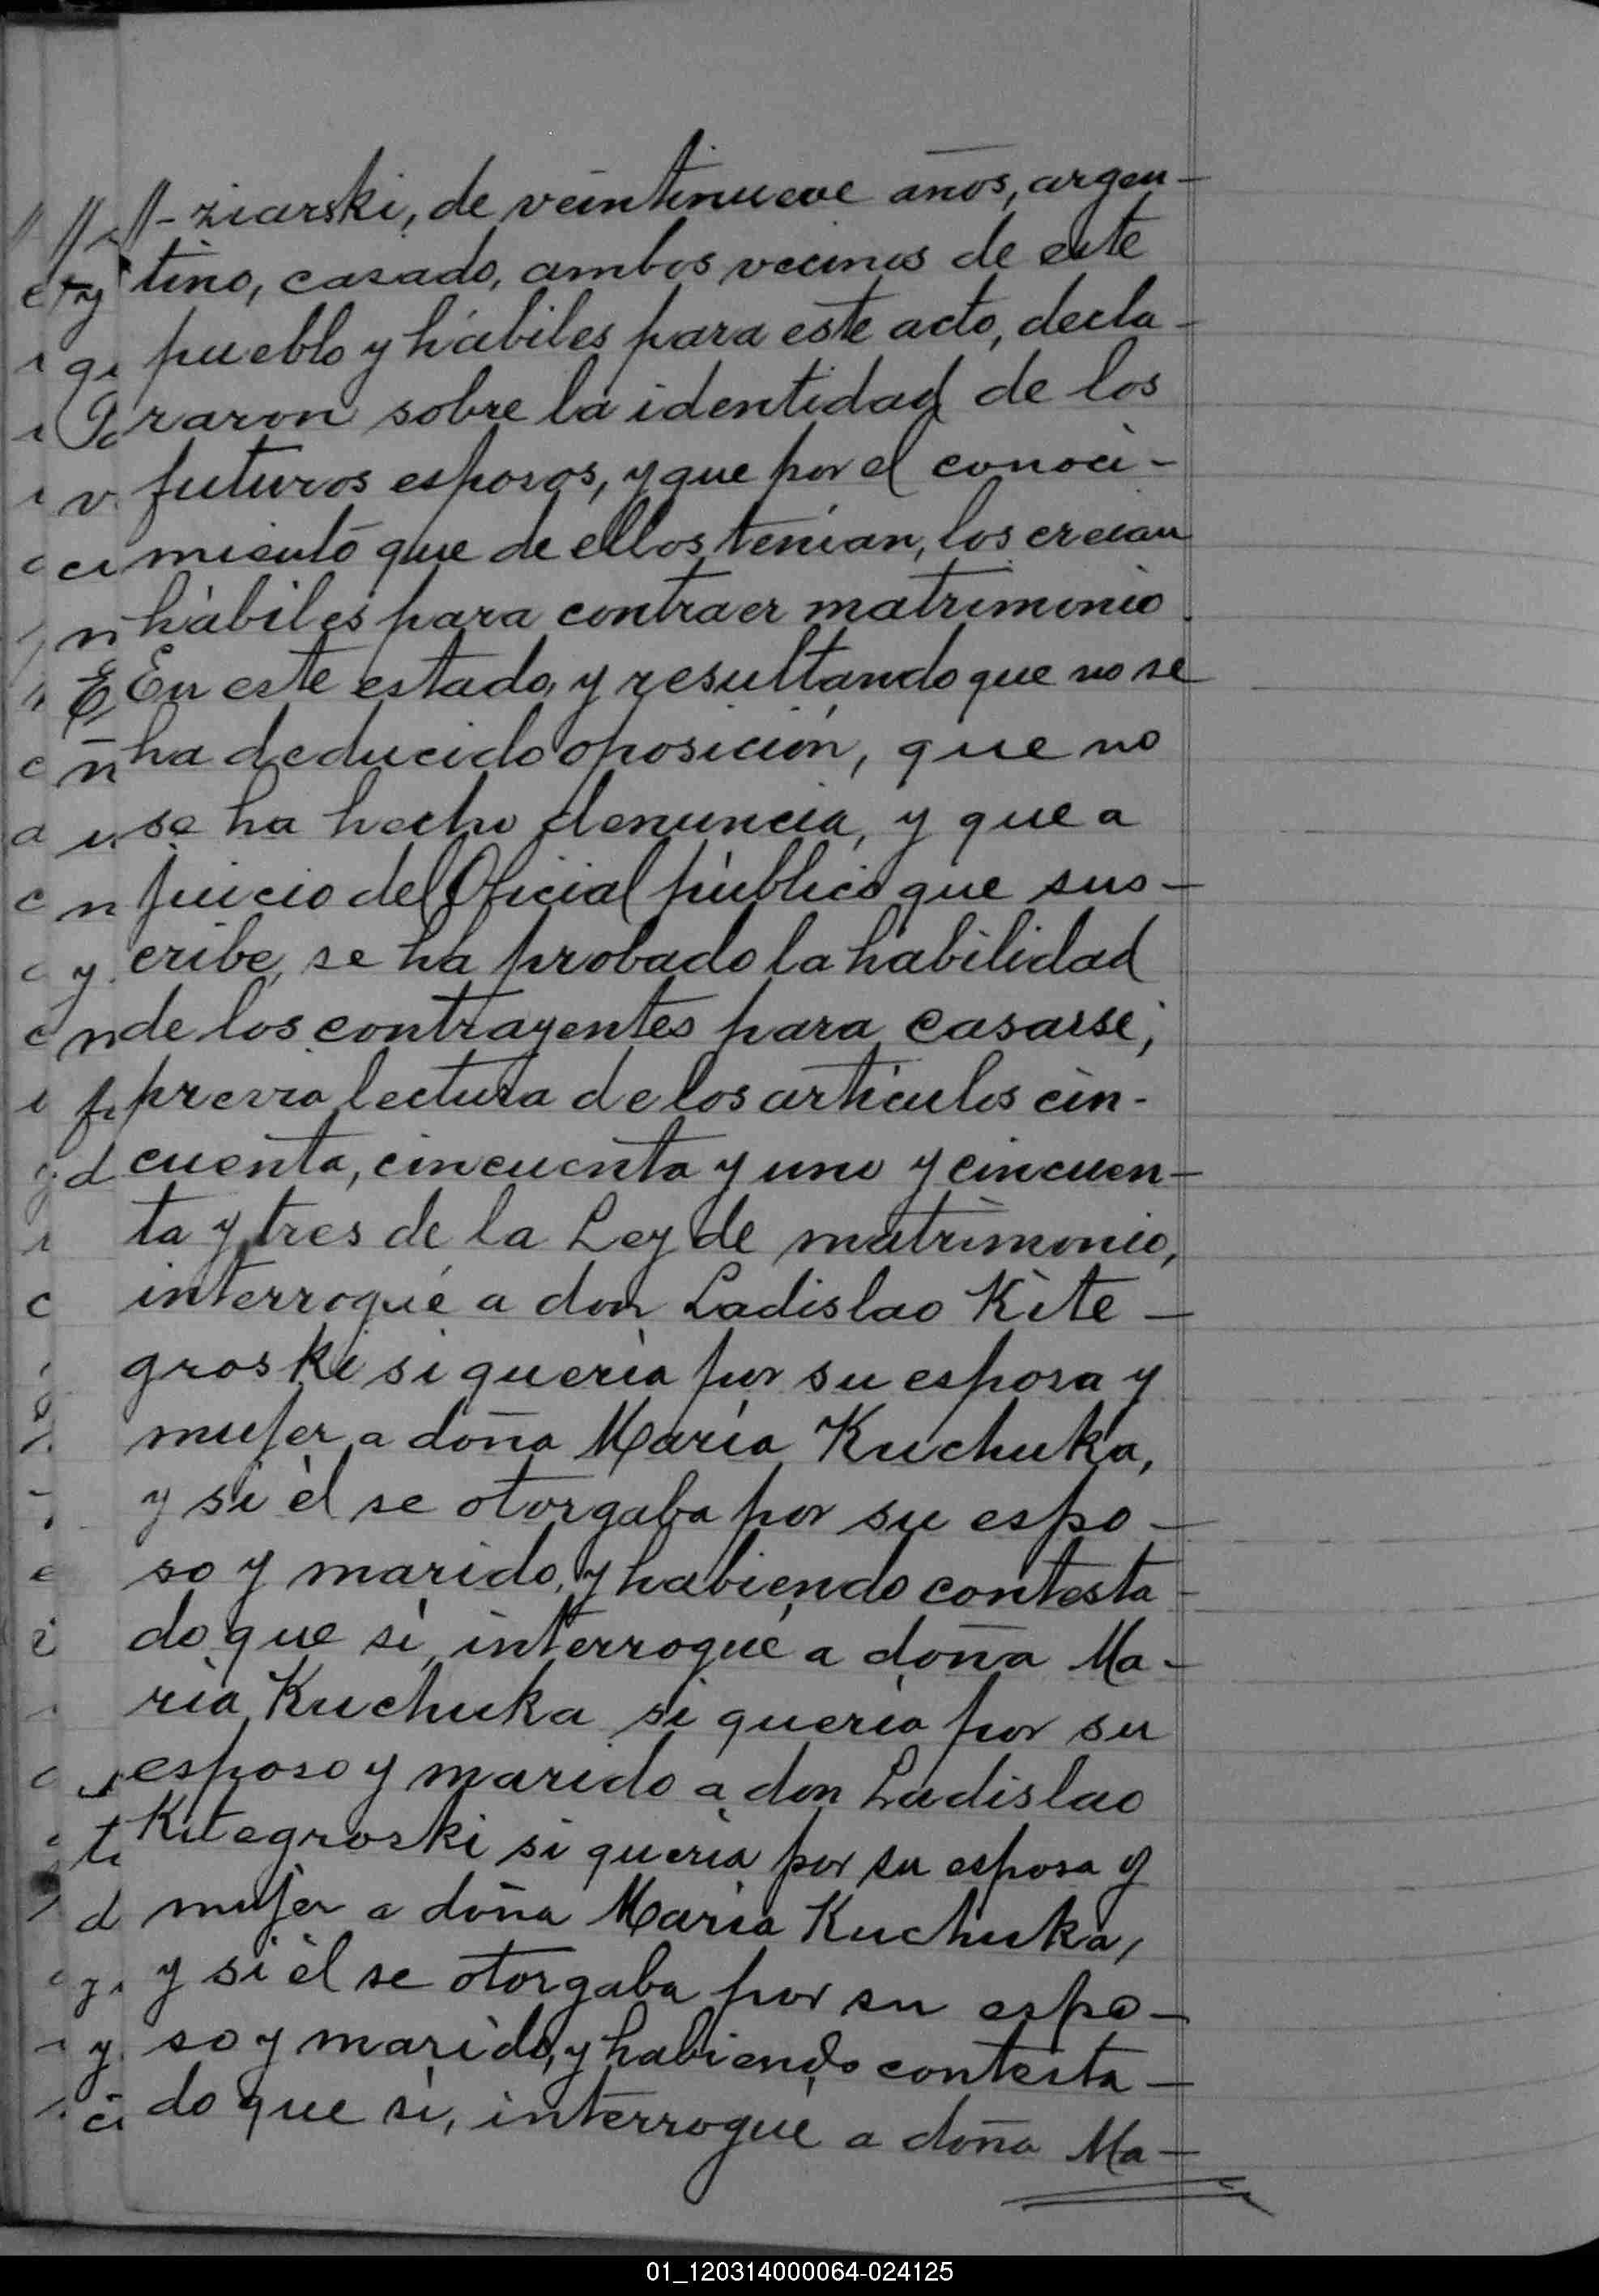 //- ziarski, de veintinueve años, argen-
tino, casado, ambos vecinos de este
pueblo y hábiles para este acto, decla-
raron sobre la identidad de los
futuros esposos, y que por el conoci-
miento que de ellos tenían, los creían
hábiles para contraer matrimonio.
En este estado, y resultando que no se
ha deducido oposición, que no
se ha hecho denuncia, y que a
juicio del Oficial público que sus-
cribe, se ha probado la habilidad
de los contrayentes para casarse;
previa lectura de los artículos cin-
cuenta, cincuenta y uno y cincuen-
ta y tres de la Ley de matrimonio,
interrogué a don Ladislao Kite-
groski si quería por su esposa y
mujer a doña María Kuchuka,
y si él se otorgaba por su espo-
so y marido, y habiendo contesta-
do que sí, interrogué a doña Ma-
ría Kuchuka si quería por su
esposo y marido a don Ladislao
Kitegroski si quería por su esposa y
mujer a doña María Kuchuka,
y si él se otorgaba por su espo-
so y marido, y habiendo contesta-
do que sí, interrogué a doña Ma-
01_120314000064-024125